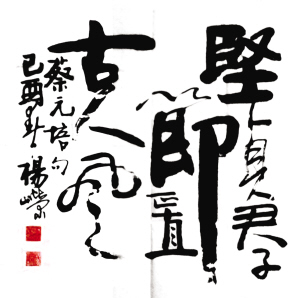 堅貞君子
節正直
古人風
蔡元培句
己酉 楊